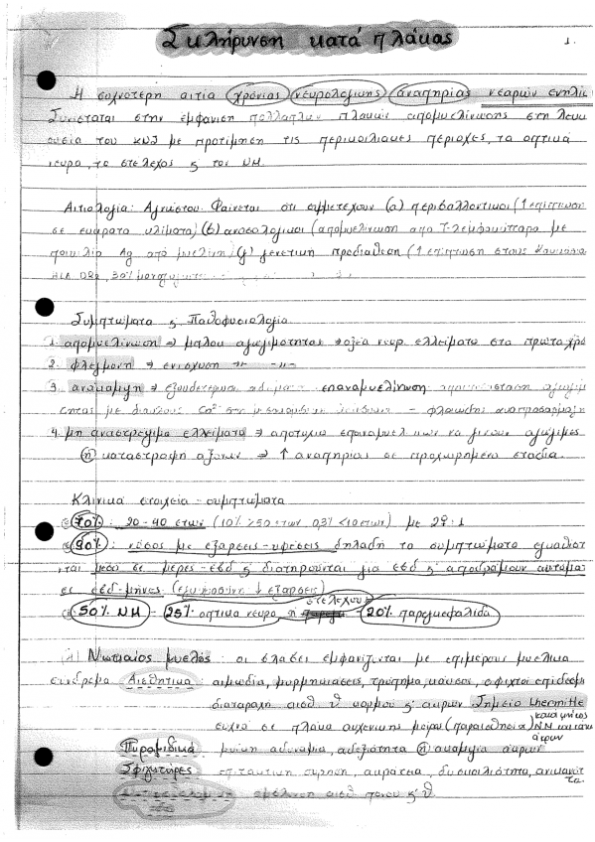 Σκλήρυνση κατά πλάκας
1.
Η συχνότερη αιτία χρόνιας νευρολογικής αναπηρίας νεαρών ενηλί
Συνίσταται στην εμφάνιση πολλαπλών πλακών απομυελίνωσης στη λευκ
ουσία του ΚΝΣ με προτίμηση τις περικοιλιακές περιοχές, τα οπτικά
νευρα, το στέλεχος ς τον ΝΜ.
Αιτιολογία: Αγνώστου. Φαίνεται ότι συμμετέχουν (α) περιβαλλοντικοί (↑ επίπτωση
σε εύκρατα κλίματα) (β) ανοσολογικοί (απομυελίνωση από Τ-λεμφοκύτταρα με
Ag από μυελίνη) (γ) γενετική προδιάθεση (↑ επίπτωση στους
Συμπτώματα ς Παθοφυσιολογία
1. απομυελίνωση → μπλοκ αγωγιμότητας → οξεία νευρ ελλείματα στα πρώτα χρό
2. φλεγμονή → ενίσχυση -»- -»-
3. ανάκαμψη → επαναμυελίνωση
4. μη αναστρέψιμα ελλείματα → αποτυχία
ή καταστροφή αξόνων → ↑ αναπηρίας σε προχωρημένα στάδια.
Κλινικά στοιχεία - συμπτώματα
70% : 20-40 ετών (10% >50 ετών 0,3% <10 ετών) με 2♀:1
90% : νόσος με εξάρσεις-υφέσεις δηλαδή τα συμπτώματα εγκαθίστ
ται μέσα σε μέρες-εβδ ς διατηρούνται για εβδ ς αποδράμουν αυτόμα
σε εβδ-μήνες (εγκυμοσύνη ↓ εξάρσεις)
στέλεχος
50% ΝΜ - 25% οπτικά νεύρα ή 20% παρεγκεφαλίδα
Νωτιαίος μυελός : οι βλάβες εμφανίζονται με επιμέρους μυελικά
σύνδρομα Αισθητικά : αιμωδία, μυρμηκιάσεις, τρύπημα, καύσος, σφιχτοί επίδεσμοι
διαταραχή αισθ θ κορμού ς άκρων Σημείο Lhermitte
συχνό σε πλάκα αυχενικής μοίρας (παραισθησία
άκρων
Πυραμιδικά μυϊκή αδυναμία, αδεξιότητα ή ακαμψία άκρων
Σφιγκτήρες επιτακτική ούρηση, ακράτεια, δυσκοιλιότητα, ανικανότ
τα.